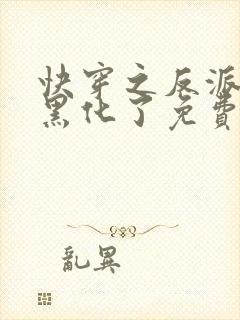 快穿之反派
黑化了免費
亂異